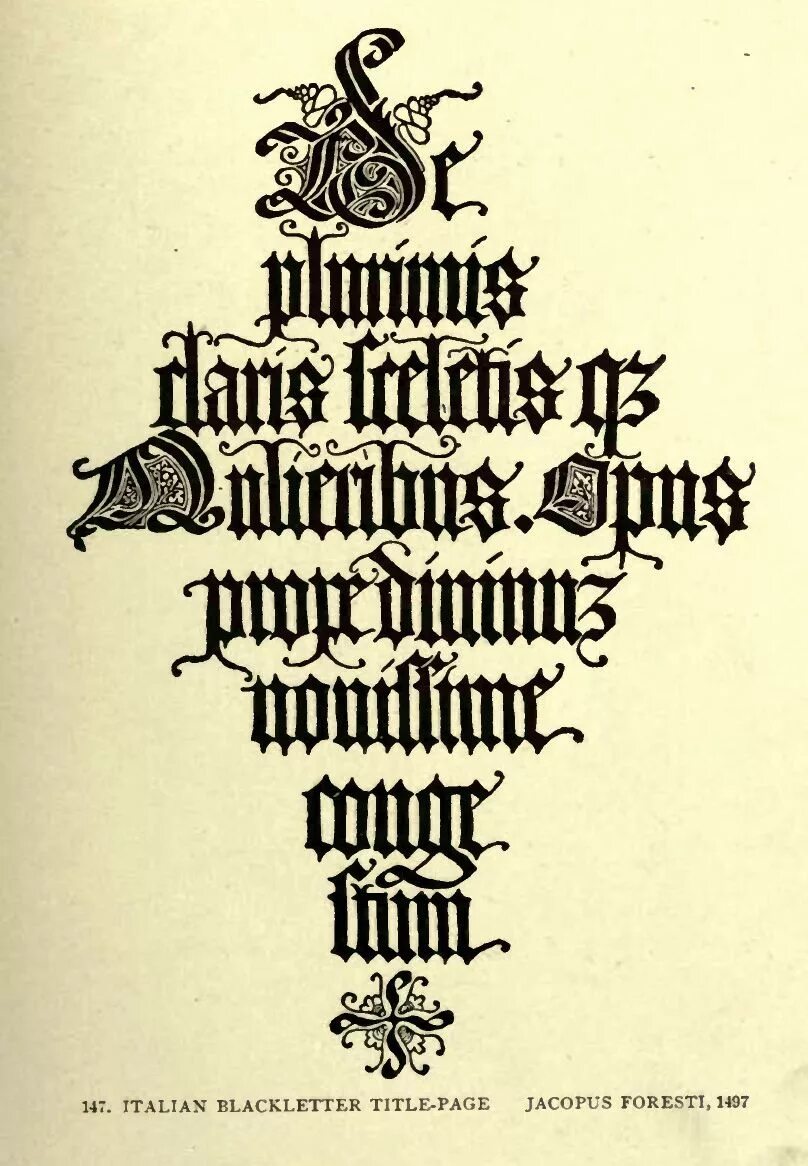 De
plurimis
claris sceletis qz
Mulieribus. Opus
prope diuinuz
nouissime
conge
stum
147. ITALIAN BLACKLETTER TITLE-PAGE JACOPUS FORESTI, 1497